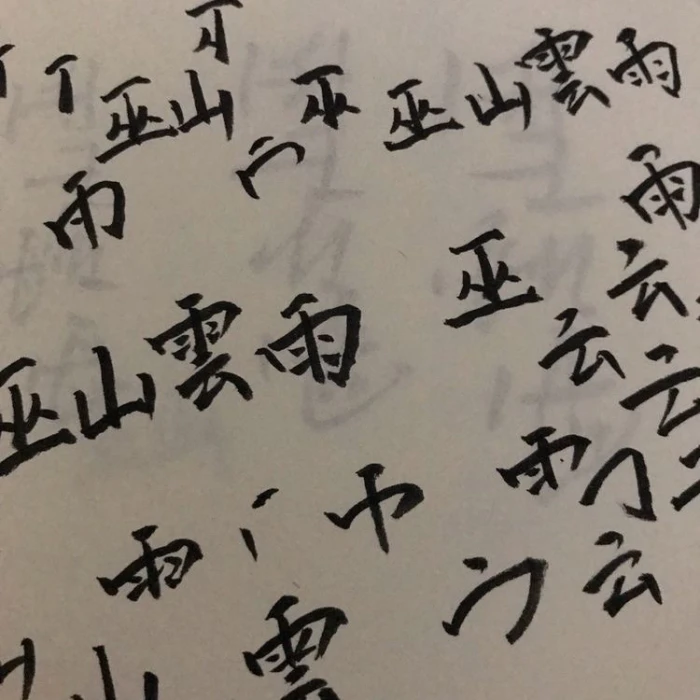 巫山巫巫山雲雨
雨雨
巫云
巫山雲雨云云
雨巾雨
云
山雲